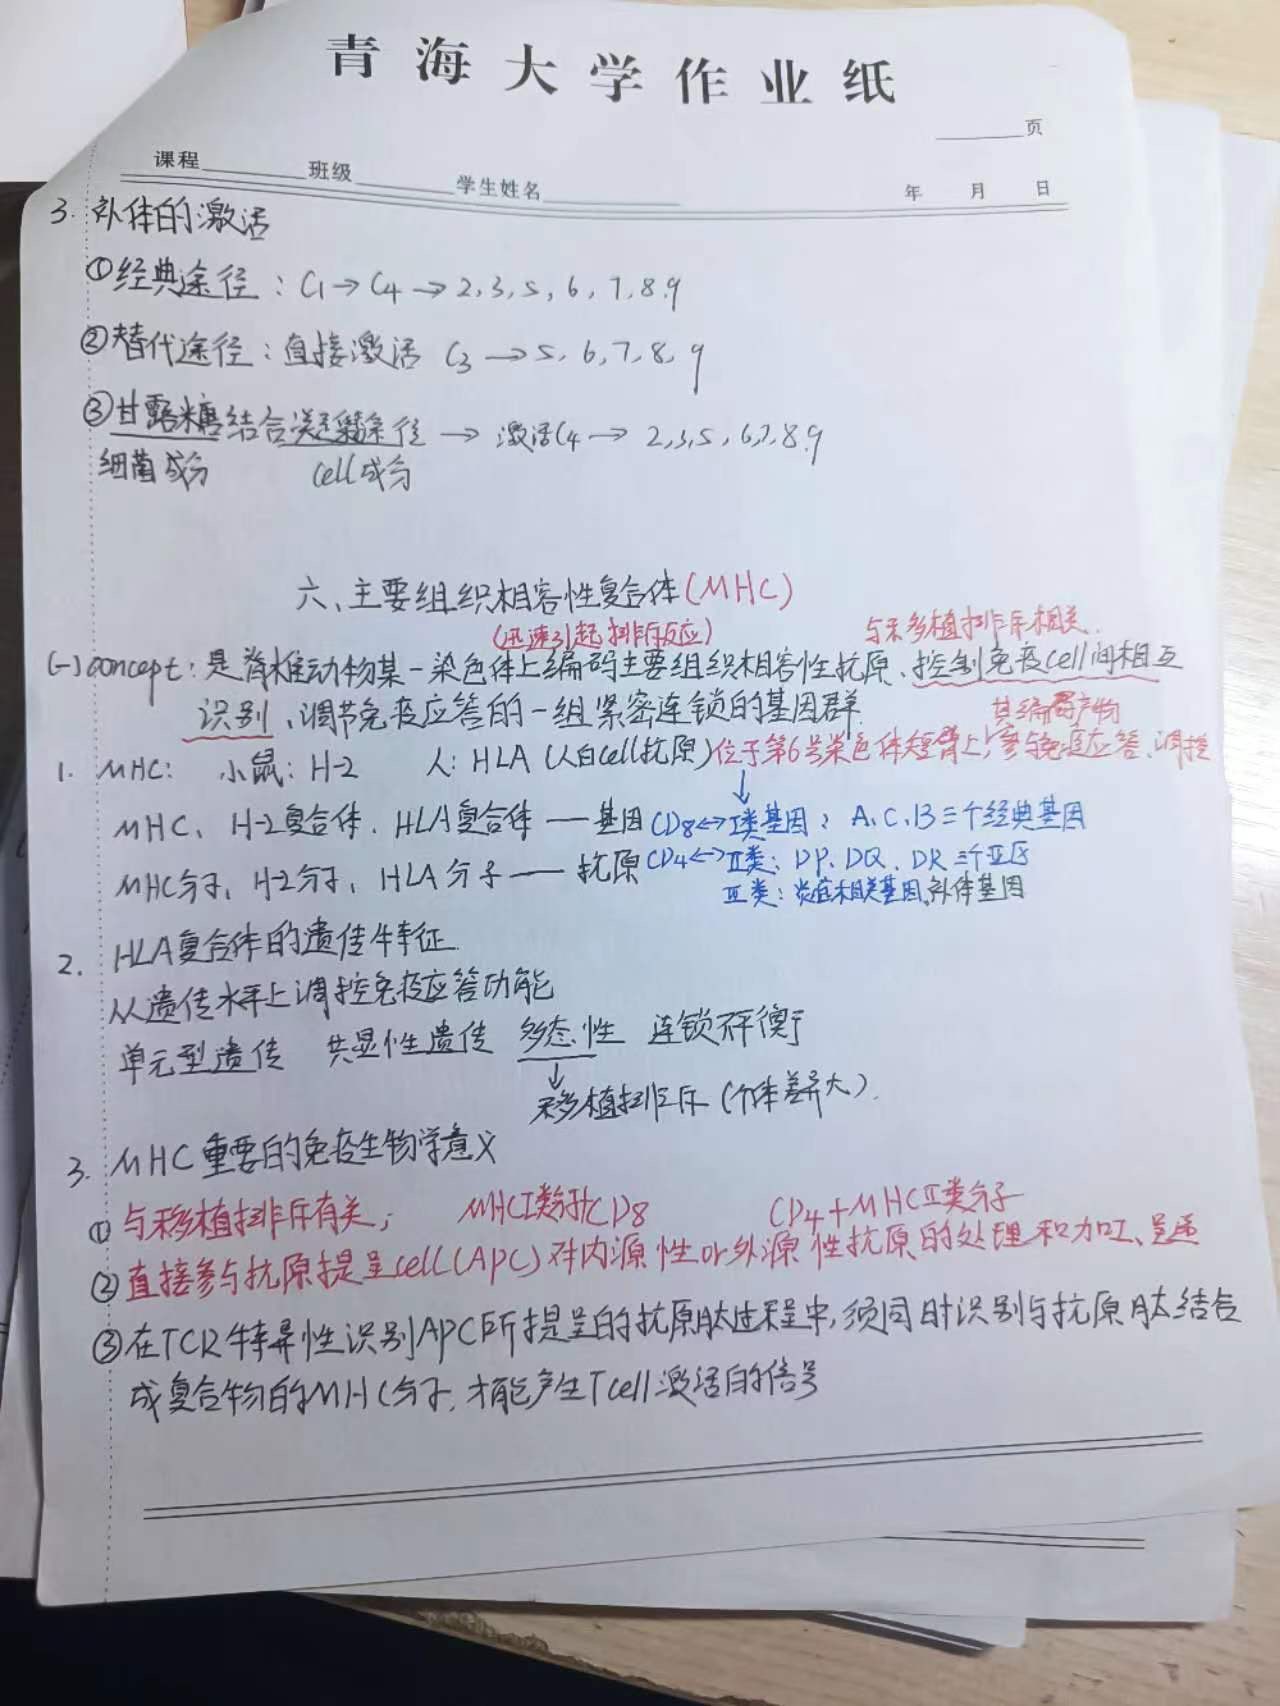 青海大学作业纸
页
课程 班级 学生姓名 年 月 日
3. 补体的激活
①经典途径：C1→C4→2,3,5,6,7,8,9
②替代途径：直接激活 C3→5,6,7,8,9
③甘露糖结合凝集素途径→激活C4→2,3,5,6,7,8,9
细菌成分 cell成分
六、主要组织相容性复合体(MHC)
(迅速引起排斥反应) 与移植排斥相关.
(一)concept：是脊椎动物某一染色体上编码主要组织相容性抗原、控制免疫cell间相互
识别、调节免疫应答的一组紧密连锁的基因群
其编码产物
1. MHC： 小鼠：H-2 人：HLA(人白cell抗原)位于第6号染色体短臂上,参与免疫应答、调控
MHC、H-2复合体、HLA复合体——基因 CD8↔I类基因：A、C、B三个经典基因
MHC分子、H-2分子、HLA分子——抗原 CD4↔II类：DP、DQ、DR三个亚区
III类：炎症相关基因,补体基因
2. HLA复合体的遗传特征.
从遗传水平上调控免疫应答功能
单元型遗传 共显性遗传 多态性 连锁不平衡
↓
移植排斥(个体差异大).
3. MHC重要的免疫生物学意义
①与移植排斥有关； MHCI类分子+CD8 CD4+MHCII类分子
②直接参与抗原提呈cell(APC)对内源性or外源性抗原的处理和加工、呈递
③在TCR特异性识别APC所提呈的抗原肽过程中,须同时识别与抗原肽结合
成复合物的MHC分子,才能产生Tcell激活的信号